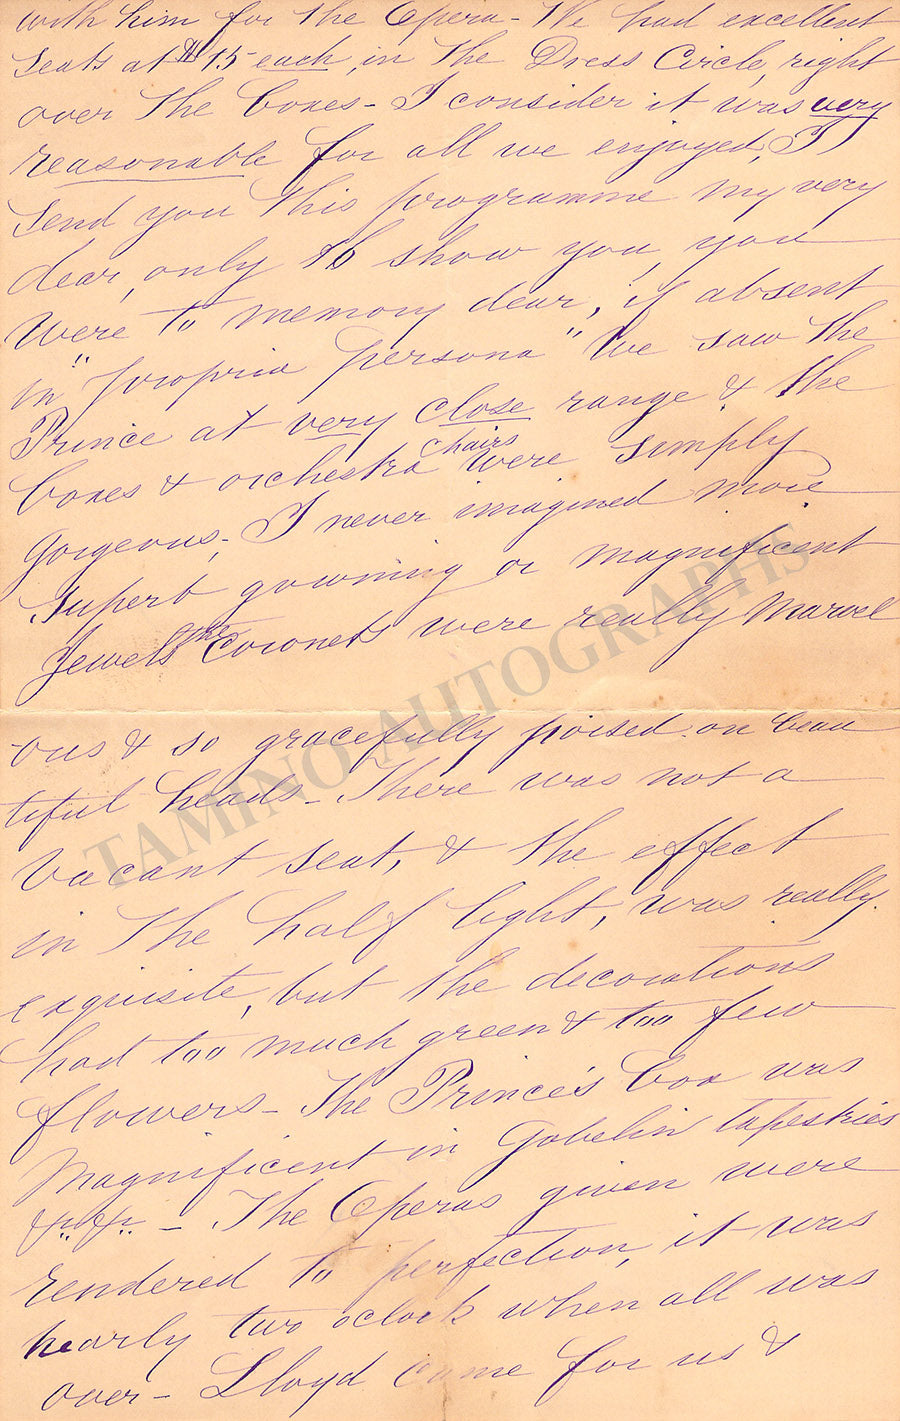 with him for the Opera - We had excellent
seats at $15 each, in the Dress Circle, right
over the boxes - I consider it was very
reasonable for all we enjoyed, I
send you this programme my very
dear, only to show you, you
were to memory dear, if absent
in "propria persona" We saw the
Prince at very close range & the
boxes & orchestra chairs were simply
gorgeous; I never imagined more
superb gowning or magnificent
Jewels the Coronets were really marvel
ous & so gracefully poised on beau
tiful heads - There was not a
vacant seat, & the effect
in the half light, was really
exquisite, but the decorations
had too much green & too few
flowers - The Prince's box was
magnificent in Gobelin tapestries
&c &c - The Operas given were
rendered to perfection, it was
nearly two oclock when all was
over - Lloyd came for us &
TAMINO AUTOGRAPHS